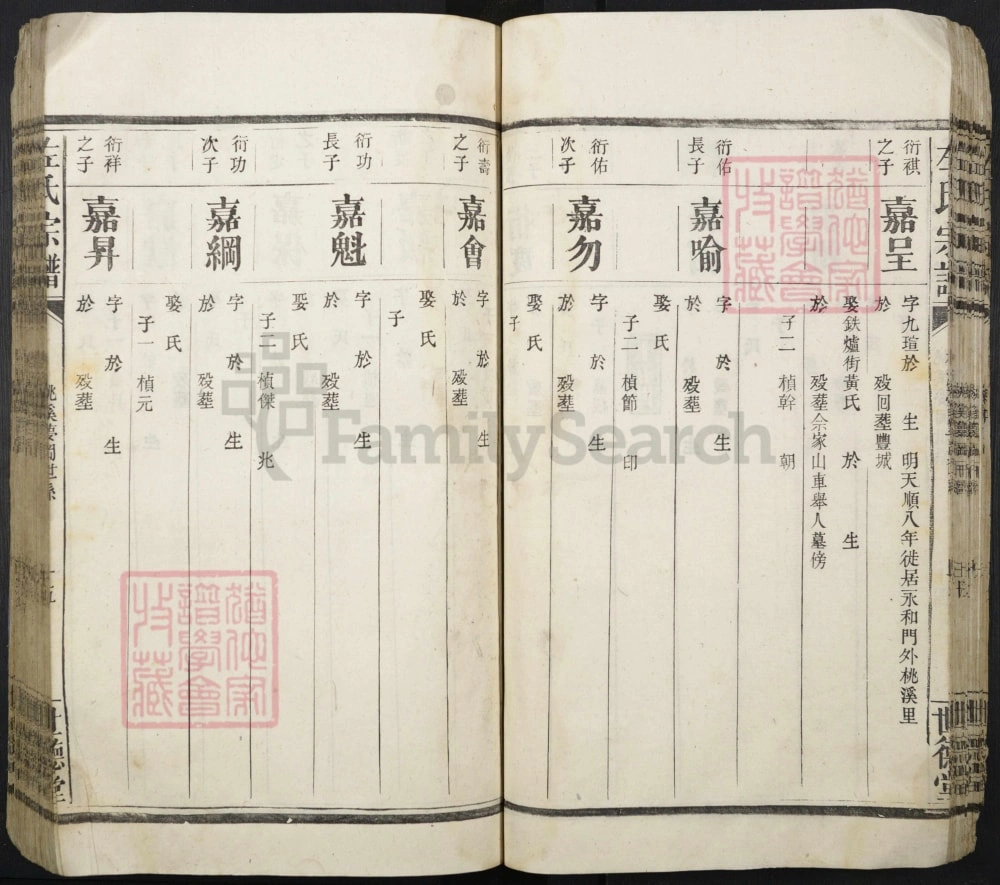 衍祺之子
嘉呈
字九瑄於 生 明天順八年徙居永和門外桃溪里
於 歿回塟豐城
娶鉄爐街黃氏 於 生
於 歿塟佘家山車舉人墓傍
子二 楨幹 朝
衍佑長子
嘉喻
字 於 生
於 歿塟
娶 氏
子二 楨節 印
衍佑次子
嘉勿
字 於 生
於 歿塟
娶 氏
子
衍壽之子
嘉會
字 於 生
於 歿塟
娶 氏
子
衍功長子
嘉魁
字 於 生
於 歿塟
娶 氏
子二 楨傑 兆
衍功次子
嘉綱
字 於 生
於 歿塟
娶 氏
子一 楨元
衍祥之子
嘉昇
字 於 生
於 歿塟
娶 氏
左氏宗譜
世德堂
左氏宗譜
世德堂
FamilySearch